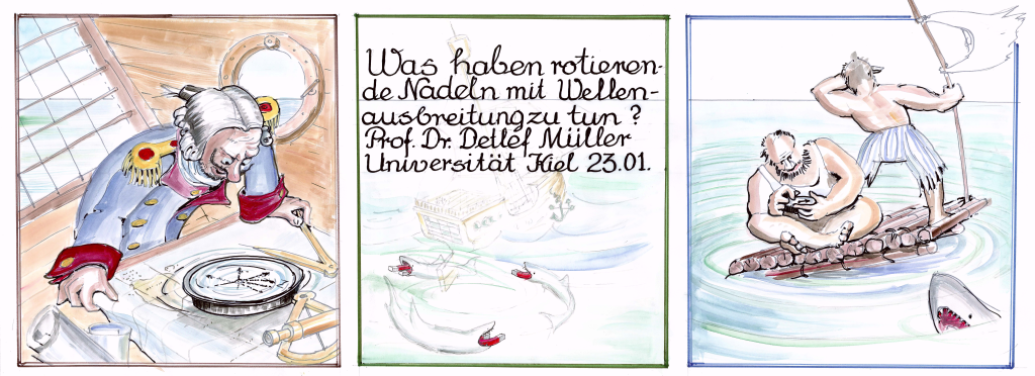 Was haben rotieren-
de Nadeln mit Wellen-
ausbreitung zu tun ?
Prof. Dr. Detlef Müller
Universität Kiel 23.01.